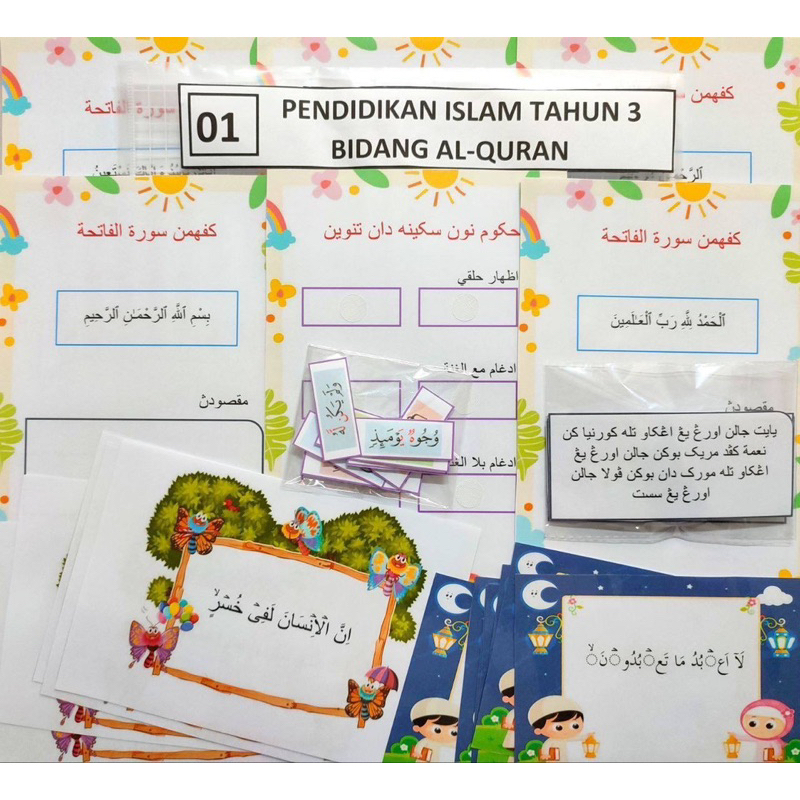 كفهمن سورة الفاتحة
كفهمن
01
PENDIDIKAN ISLAM TAHUN 3
BIDANG AL-QURAN
كفهمن سورة الفاتحة
بِسْمِ ٱللَّهِ ٱلرَّحْمَـٰنِ ٱلرَّحِيمِ
مقصودڽ
حكوم نون سكينه دان تنوين
اظهار حلقي
ادغام مع الغنة
ادغام بلا
وَلَمْ يَكُنْ لَّهُ
وُجُوهٌ يَوْمَئِذٍ
كفهمن سورة الفاتحة
ٱلْحَمْدُ لِلَّهِ رَبِّ ٱلْعَـٰلَمِينَ
مقصودڽ
يايت جالن اورڠ يڠ اڠكاو تله كورنيا كن
نعمة كڤد مريک بوكن جالن اورڠ يڠ
اڠكاو تله مورک دان بوكن ڤولا جالن
اورڠ يڠ سست
اِنَّ الْاِنْسَانَ لَفِىْ خُسْرٍۙ
لَآ اَعْبُدُ مَا تَعْبُدُوْنَۙ